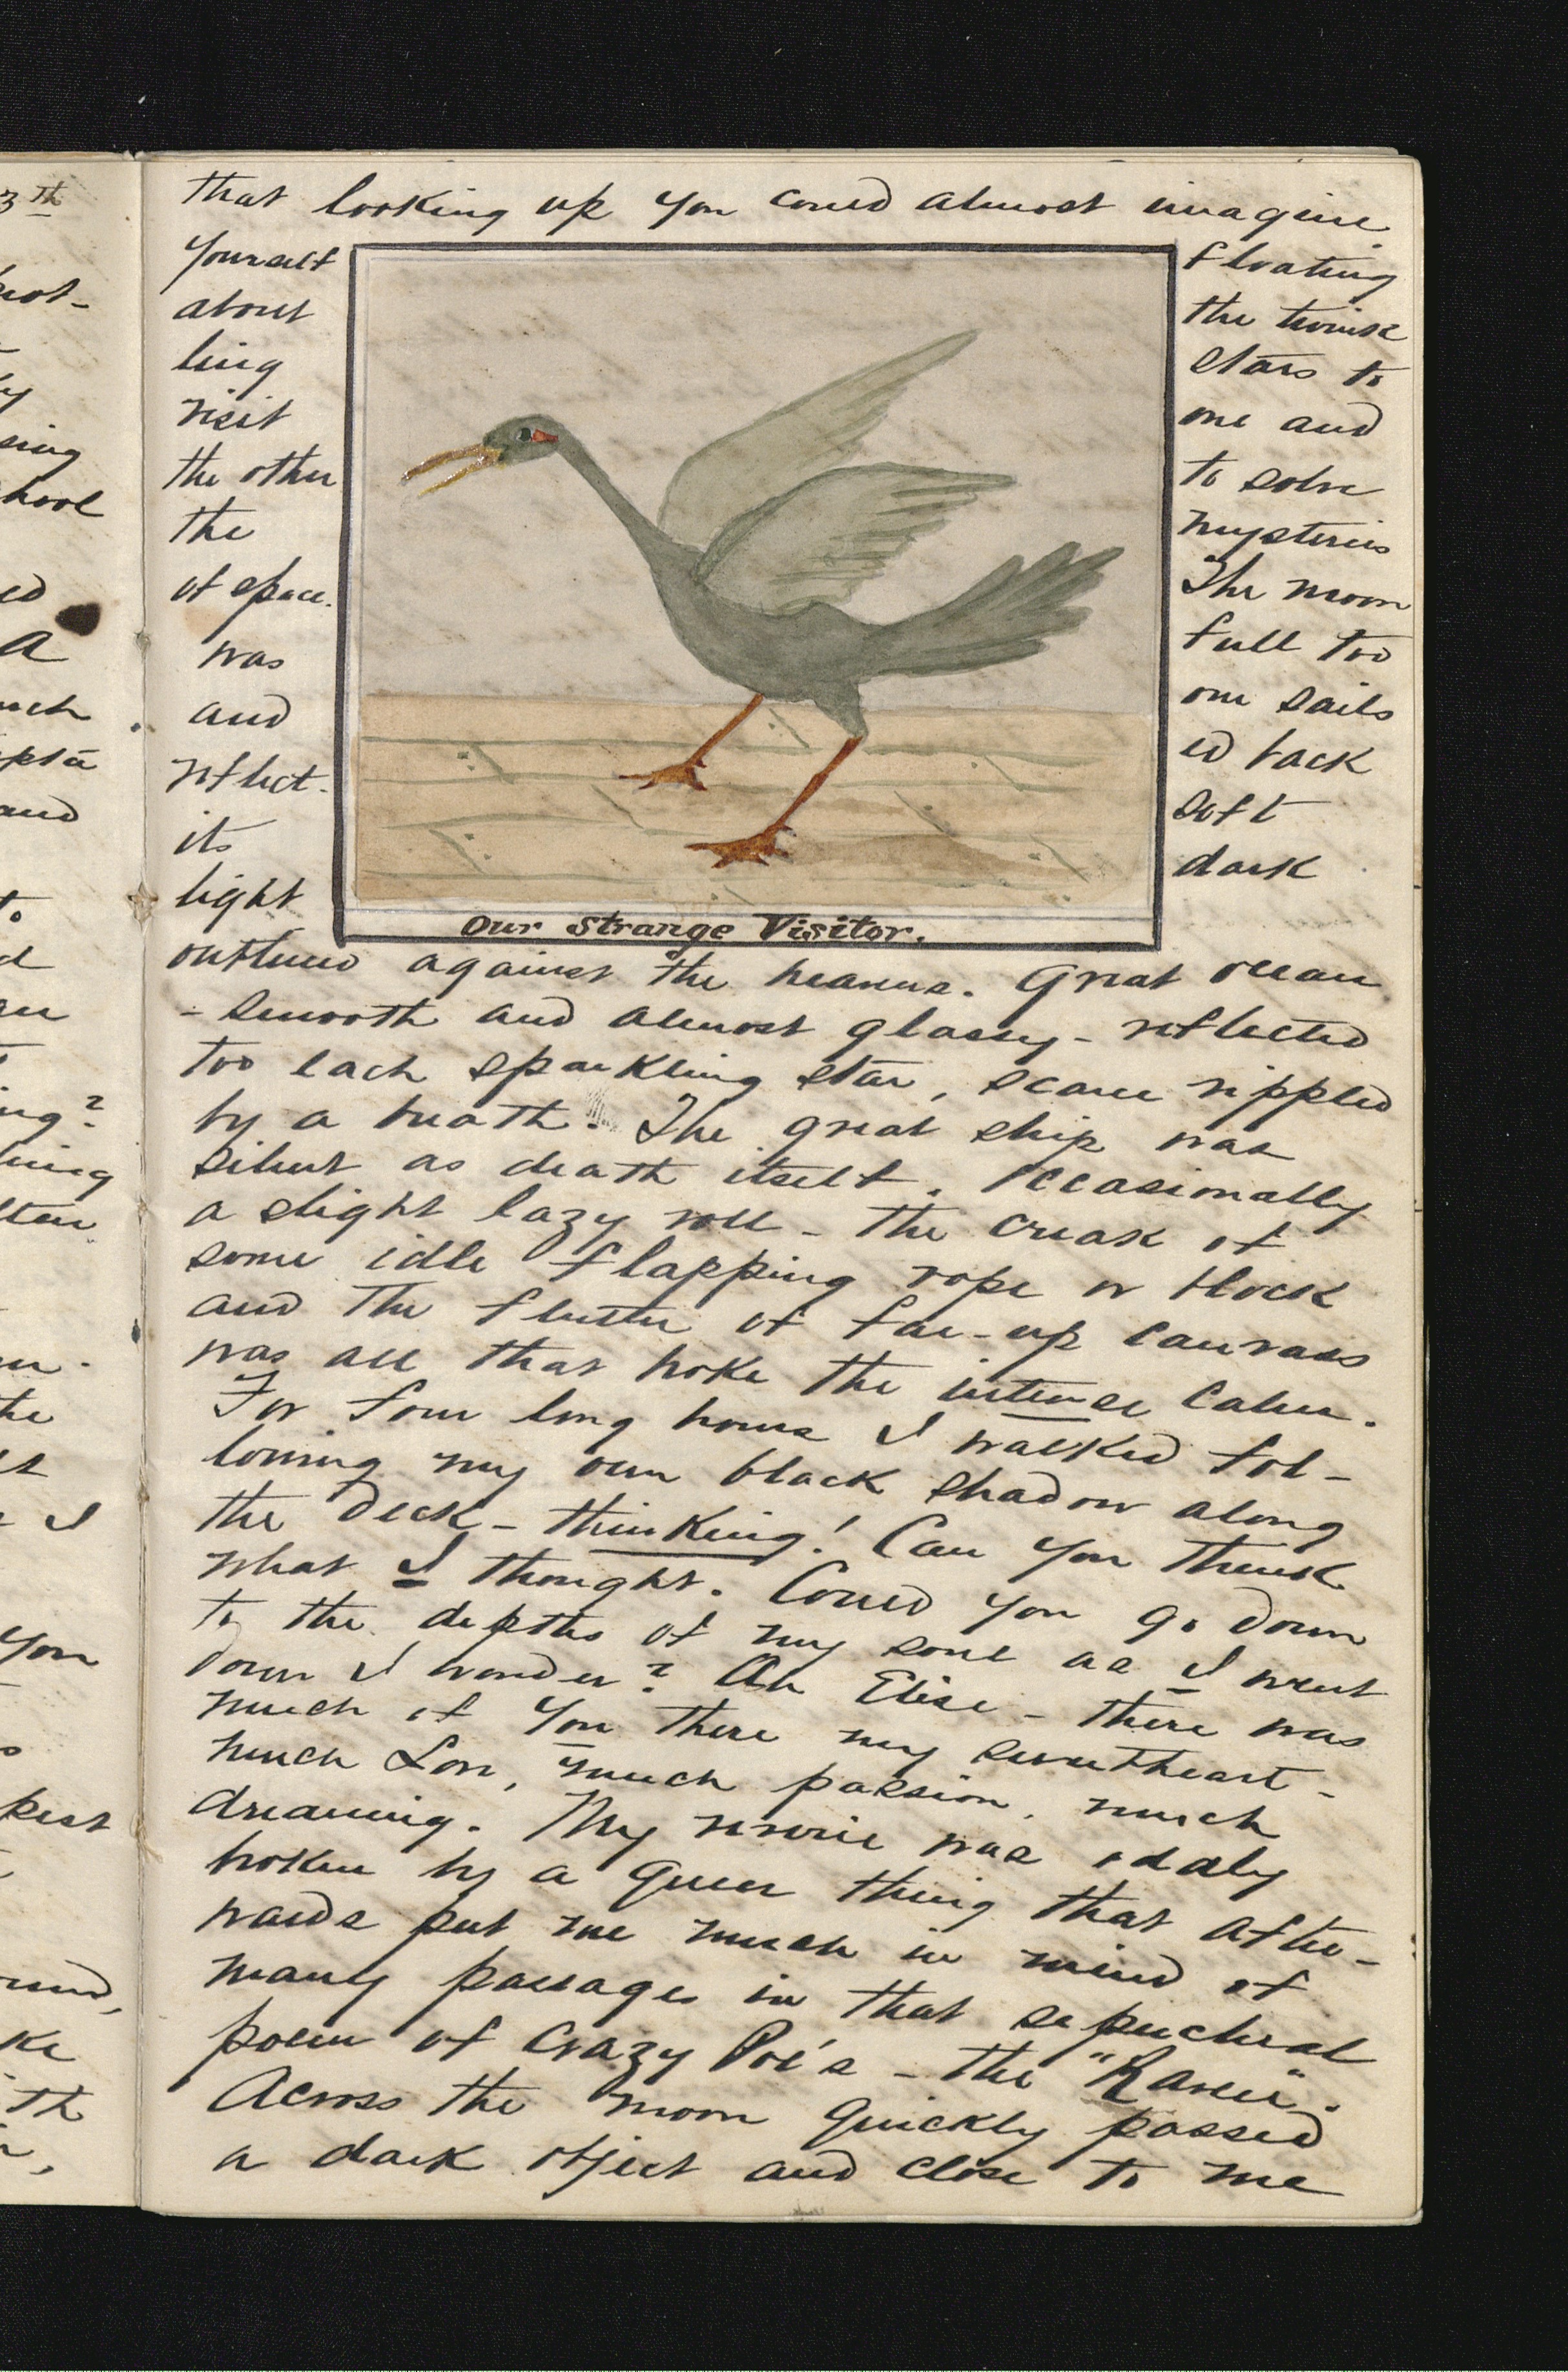 3th
not-
y
sing
chool
ed
a
uch
and
to
d
ing?
I
You
pest
ke
th
that looking up you could almost imagine
yourself floating
about the twink
ling stars to
visit one and
the other to solve
the mysteries
of space. The moon
was full too
and our sails
reflect- ed back
its soft
light dark
Our Strange Visitor.
outlined against the heavens. Great ocean
- smooth and almost glassy - reflected
too each sparkling star, scarce rippled
by a breath. The great ship was
silent as death itself. Occasionally
a slight lazy roll - the creak of
some idle flapping rope or block
and the flutter of far-up canvass
was all that broke the intense calm.
For four long hours I walked fol-
lowing my own black shadow along
the deck - thinking! Can you think
what I thought. Could you go down
to the depths of my soul as I went
down I wonder? Ah Elise - there was
much of you there my sweetheart -
much Love, much passion, much
dreaming. My reverie was oddly
broken by a queer thing that after-
wards put me much in mind of
many passages in that sepulchral
poem of Crazy Poe's - the "Raven".
Across the moon quickly passed
a dark object and close to me